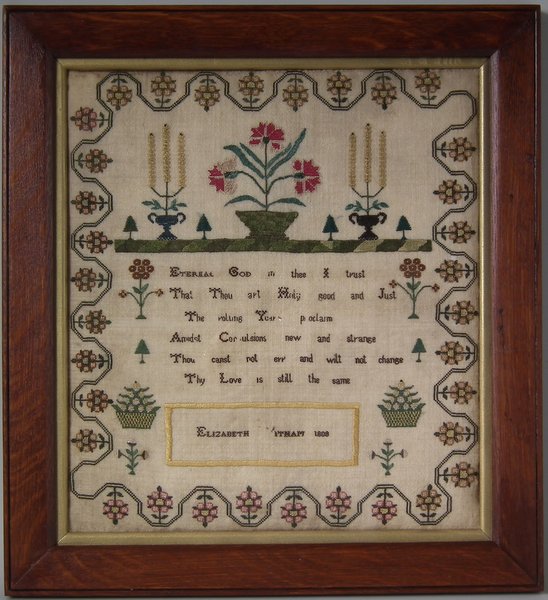 Eternal God in thee I trust
That Thou art Holy good and Just
The rolling Years proclaim
Amidst Convulsions new and strange
Thou canst not err and wilt not change
Thy Love is still the same
Elizabeth 1808